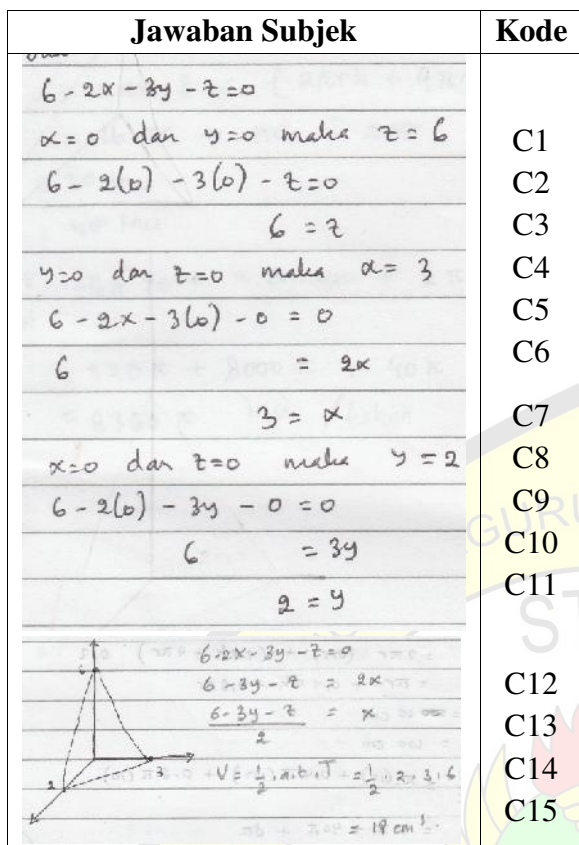 Jawaban Subjek Kode
6 - 2x - 3y - z = 0
x = 0 dan y = 0 maka z = 6 C1
6 - 2(0) - 3(0) - z = 0 C2
6 = z C3
y = 0 dan z = 0 maka x = 3 C4
6 - 2x - 3(0) - 0 = 0 C5
6 = 2x C6
3 = x C7
x = 0 dan z = 0 maka y = 2 C8
6 - 2(0) - 3y - 0 = 0 C9
6 = 3y C10
2 = y C11
6 - 2x - 3y - z = 0
6 - 3y - z = 2x C12
6 - 3y - z / 2 = x C13
2 3 V = 1/2 . a . t . T = 1/2 . 2 . 3 . 6 C14
= 18 cm³. C15
GURU
ST